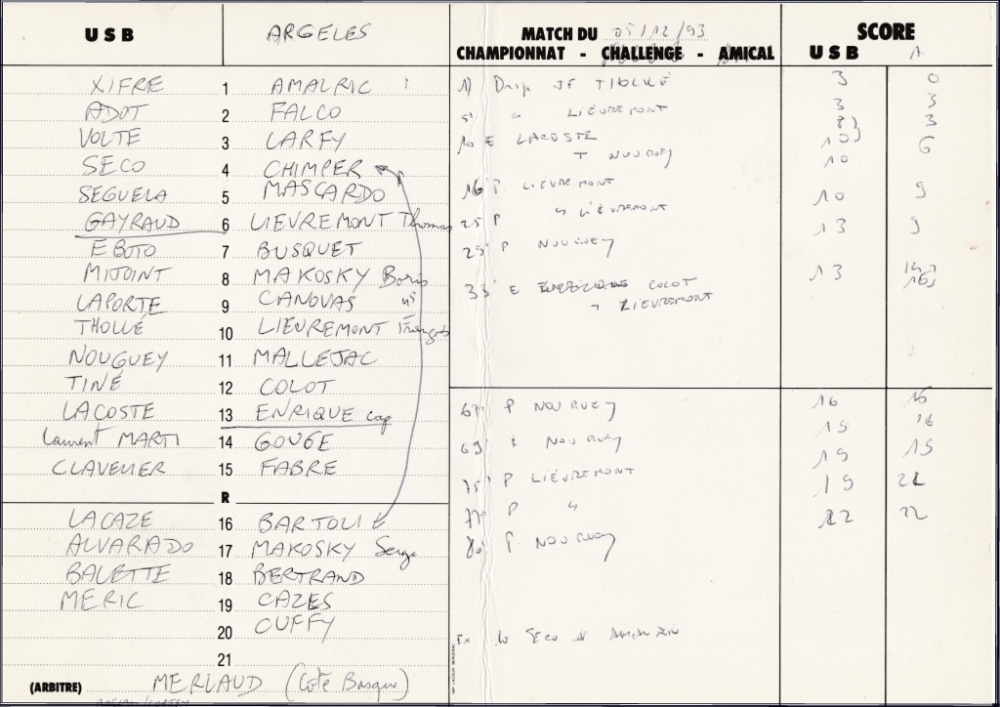 USB ARGELES MATCH DU 05/12/93 SCORE
CHAMPIONNAT - CHALLENGE - AMICAL USB A
XIFRE 1 AMALRIC
ADOT 2 FALCO
VOLTE 3 LARFY
SECO 4 CHIMPER
SEGUELA 5 MASCARDO
GAYRAUD 6 LIEVREMONT Thomas
EBOTO 7 BUSQUET
MIJOINT 8 MAKOSKY Boris
LAPORTE 9 CANOVAS
THOLLÉ 10 LIEVREMONT François
NOUGUEY 11 MALLEJAC
TINÉ 12 COLOT
LACOSTE 13 ENRIQUE cap
Laurent MARTI 14 GOUGE
CLAVELIER 15 FABRE
R
LACAZE 16 BARTOLI
ALVARADO 17 MAKOSKY Serge
BALETTE 18 BERTRAND
MERIC 19 CAZES
20 CUFFY
21
(ARBITRE) MERLAUD (Côte Basque)
1) Drop JF THOLLÉ 3 0
5' " LIEVREMONT 3 3
10 E LACOSTE 8 3
T NOUGUEY 10 6
16' P LIEVREMONT 10 9
25' P " LIEVREMONT 13 9
29' P NOUGUEY 13
33' E COLOT
" LIEVREMONT
67' P NOUGUEY 16 16
69' NOUGUEY 19
75' P LIEVREMONT 19 19
77' P " 19 22
80' P NOUGUEY 22 22